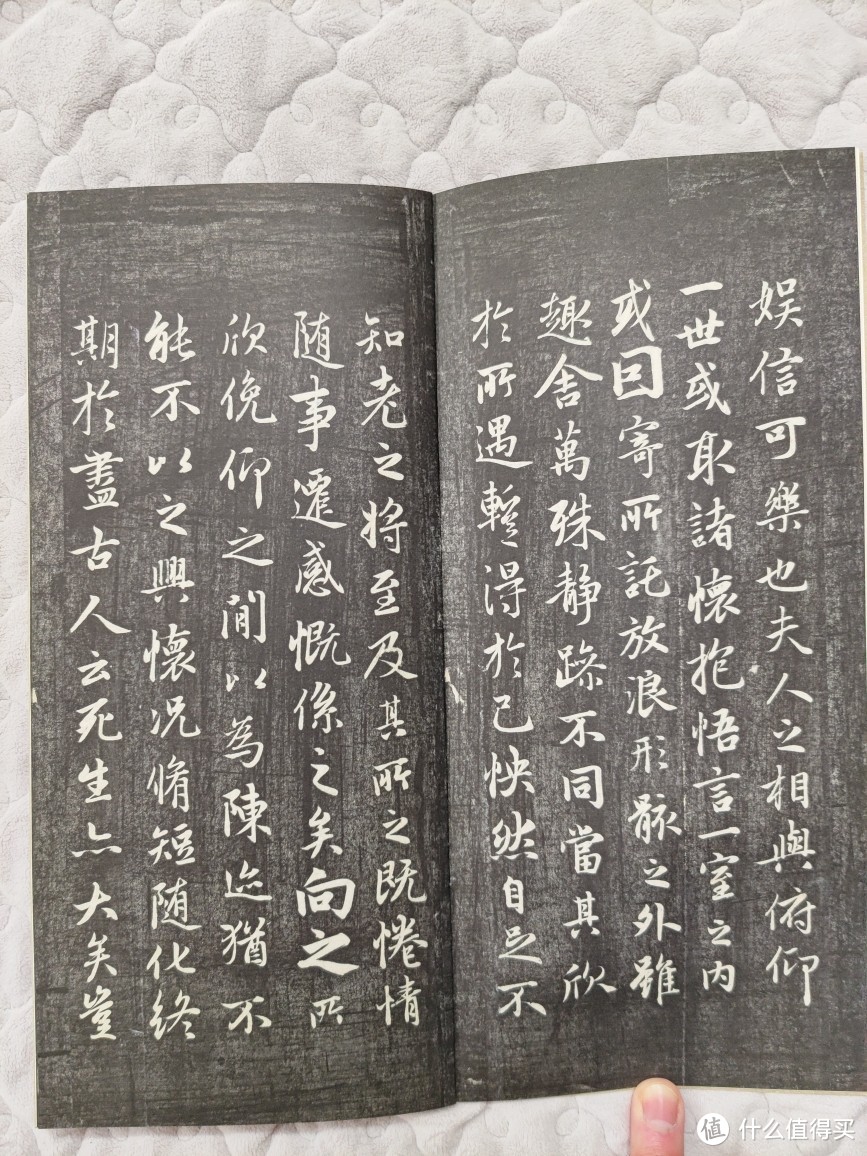 娱信可樂也夫人之相與俯仰
一世或取諸懷抱悟言一室之内
或因寄所託放浪形骸之外雖
趣舍萬殊静躁不同當其欣
於所遇暫得於己怏然自足不
知老之將至及其所之既惓情
随事遷感慨係之矣向之所
欣俛仰之閒以為陳迹猶不
能不以之興懷况脩短随化終
期於盡古人云死生亦大矣豈
值 什么值得买